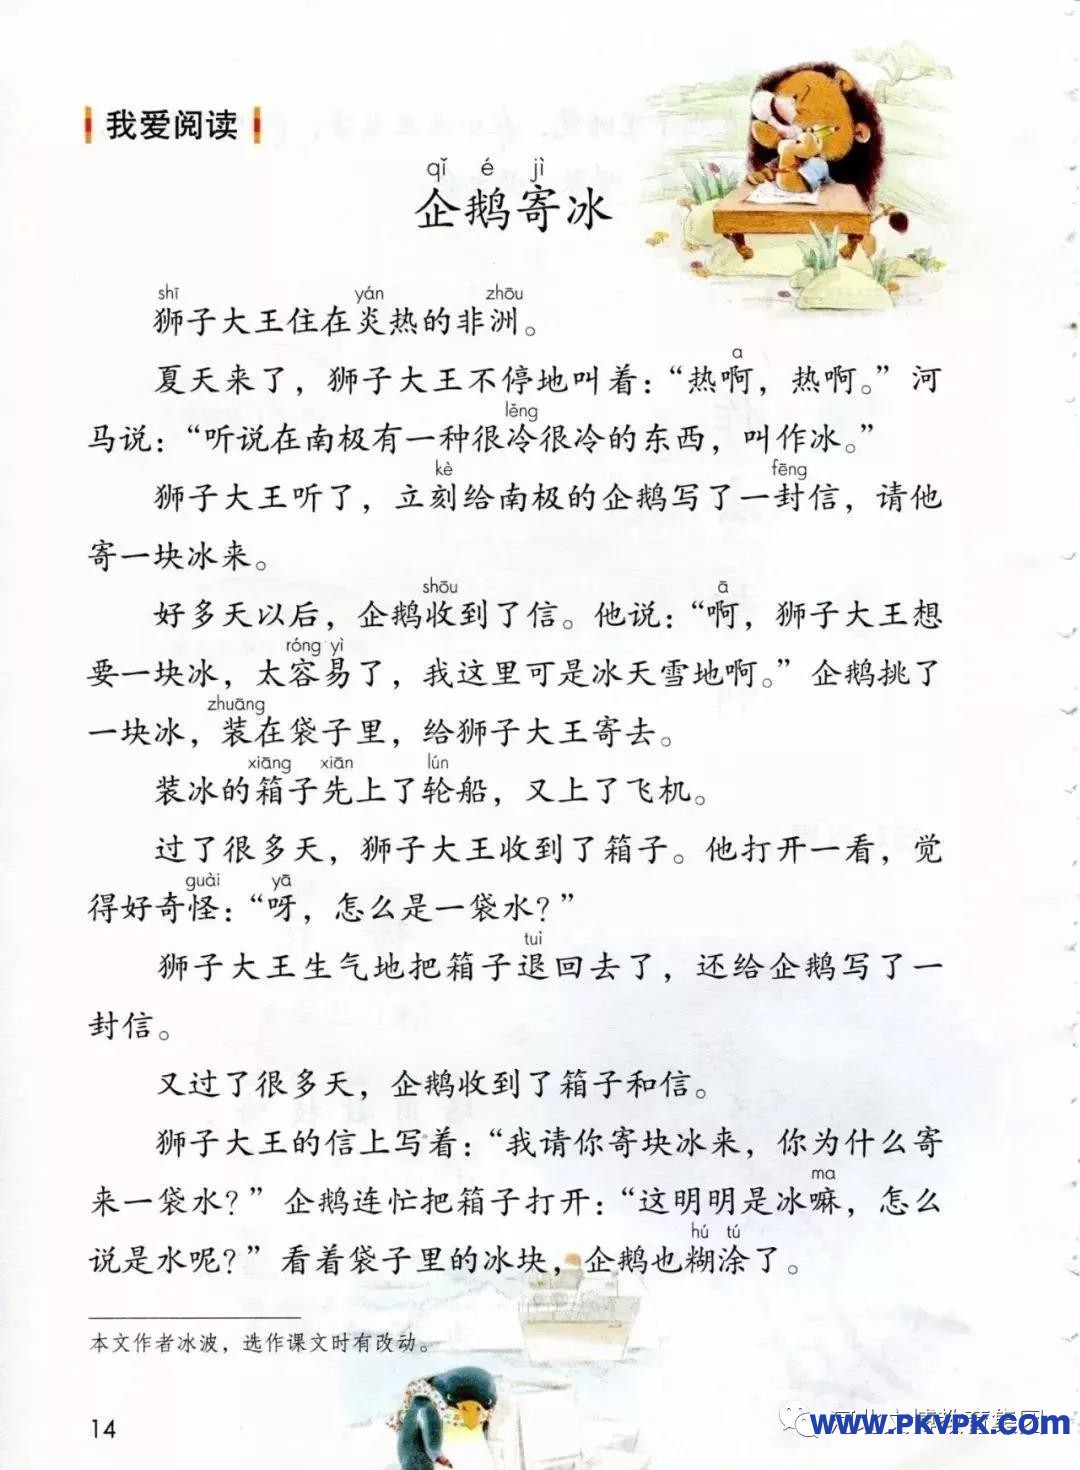 我爱阅读
qǐ é jì
企鹅寄冰
shī yán zhōu
狮子大王住在炎热的非洲。
a
夏天来了，狮子大王不停地叫着：“热啊，热啊。”河
lěng
马说：“听说在南极有一种很冷很冷的东西，叫作冰。”
kè fēng
狮子大王听了，立刻给南极的企鹅写了一封信，请他
寄一块冰来。
shōu ā
好多天以后，企鹅收到了信。他说：“啊，狮子大王想
róng yì
要一块冰，太容易了，我这里可是冰天雪地啊。”企鹅挑了
zhuāng
一块冰，装在袋子里，给狮子大王寄去。
xiāng xiān lún
装冰的箱子先上了轮船，又上了飞机。
过了很多天，狮子大王收到了箱子。他打开一看，觉
guài yā
得好奇怪：“呀，怎么是一袋水？”
tuì
狮子大王生气地把箱子退回去了，还给企鹅写了一
封信。
又过了很多天，企鹅收到了箱子和信。
狮子大王的信上写着：“我请你寄块冰来，你为什么寄
ma
来一袋水？”企鹅连忙把箱子打开：“这明明是冰嘛，怎么
hú tú
说是水呢？”看着袋子里的冰块，企鹅也糊涂了。
本文作者冰波，选作课文时有改动。
14
www.PKVPK.com